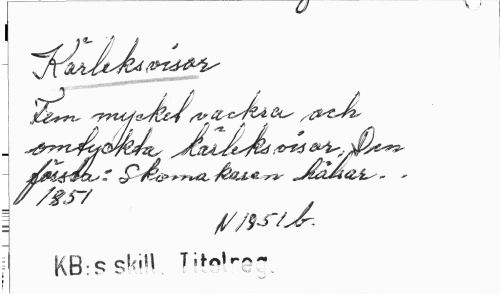 Kärleksvisor
Fem mycket vackra och
omtyckta kärleksvisor. Den
första: Skomakaren hälsar . .
1851
N 1951 b.
KB:s skill. Titelreg.